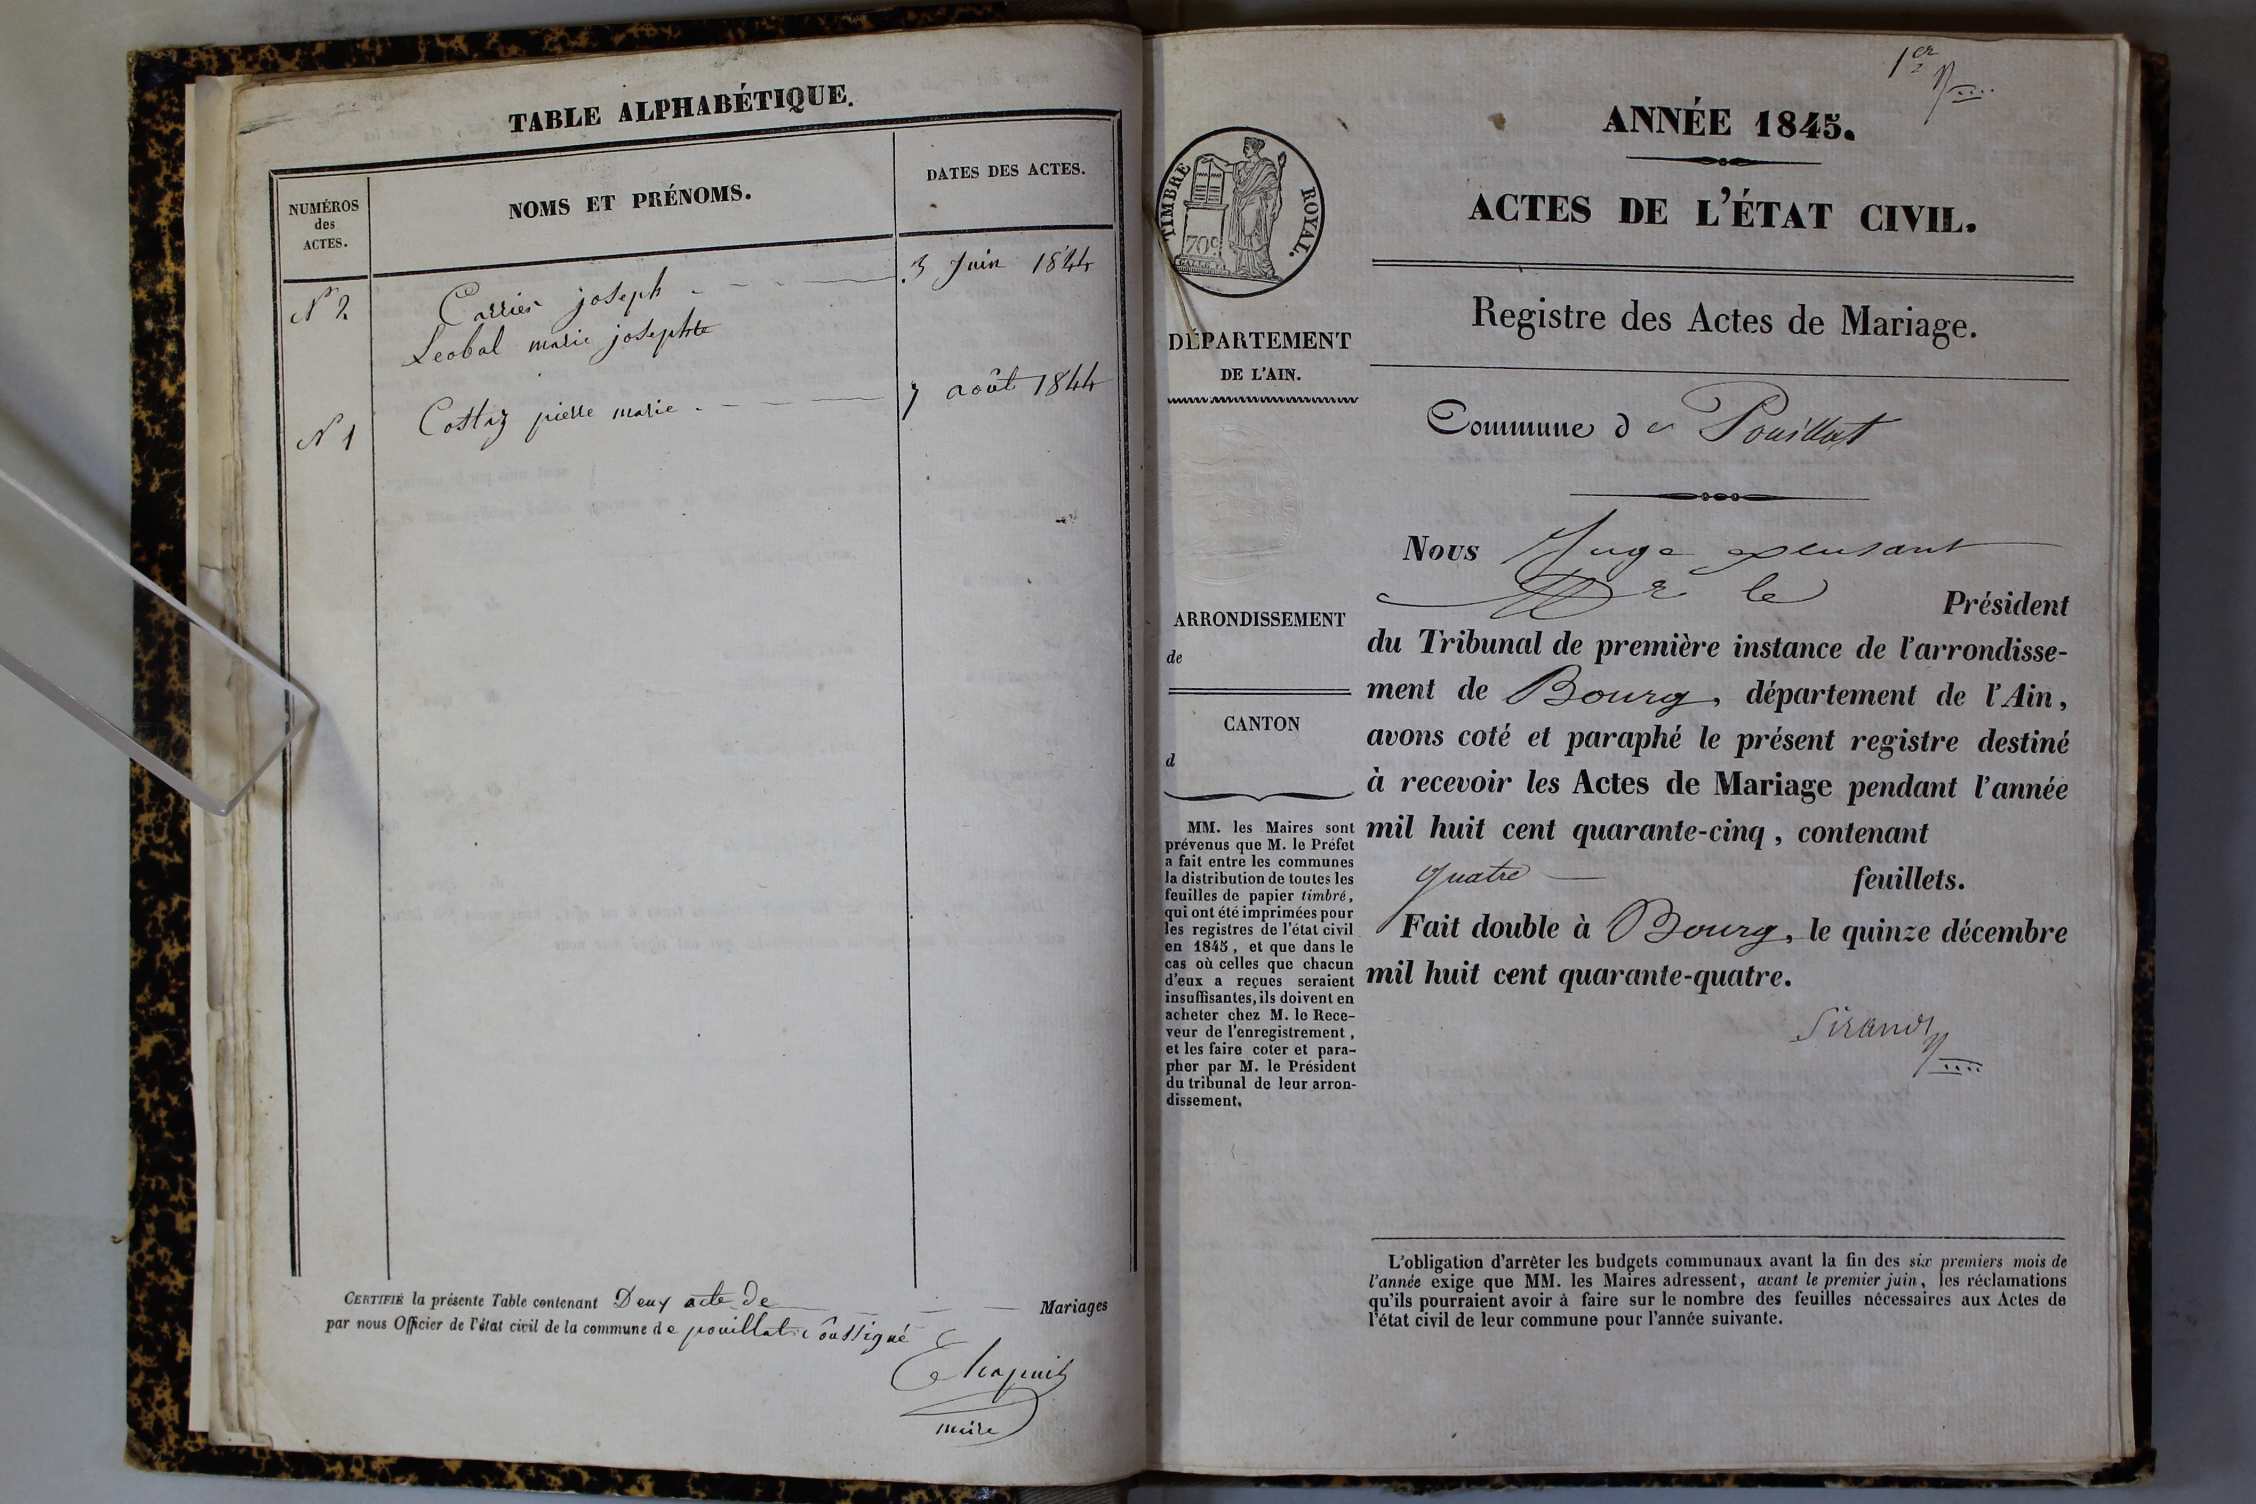 TABLE ALPHABÉTIQUE.
NUMÉROS
des
ACTES.
NOMS ET PRÉNOMS.
DATES DES ACTES.
N 2. Carrier joseph 3 Juin 1844
Leobal marie josephte
N 1 Costaz pierre marie 7 août 1844
CERTIFIÉ la présente Table contenant Deux acte de Mariages
par nous Officier de l'état civil de la commune de pouillat soussigné
Chapuis
maire
1er
ANNÉE 1845.
ACTES DE L'ÉTAT CIVIL.
Registre des Actes de Mariage.
TIMBRE ROYAL.
70c
DÉPARTEMENT
DE L'AIN.
ARRONDISSEMENT
de
CANTON
d
MM. les Maires sont
prévenus que M. le Préfet
a fait entre les communes
la distribution de toutes les
feuilles de papier timbré,
qui ont été imprimées pour
les registres de l'état civil
en 1845, et que dans le
cas où celles que chacun
d'eux a reçues seraient
insuffisantes, ils doivent en
acheter chez M. le Rece-
veur de l'enregistrement,
et les faire coter et para-
pher par M. le Président
du tribunal de leur arron-
dissement.
Commune de Pouillat
Nous Juge
le Président
du Tribunal de première instance de l'arrondisse-
ment de Bourg, département de l'Ain,
avons coté et paraphé le présent registre destiné
à recevoir les Actes de Mariage pendant l'année
mil huit cent quarante-cinq, contenant
quatre feuillets.
Fait double à Bourg, le quinze décembre
mil huit cent quarante-quatre.
Sirand
L'obligation d'arrêter les budgets communaux avant la fin des six premiers mois de
l'année exige que MM. les Maires adressent, avant le premier juin, les réclamations
qu'ils pourraient avoir à faire sur le nombre des feuilles nécessaires aux Actes de
l'état civil de leur commune pour l'année suivante.